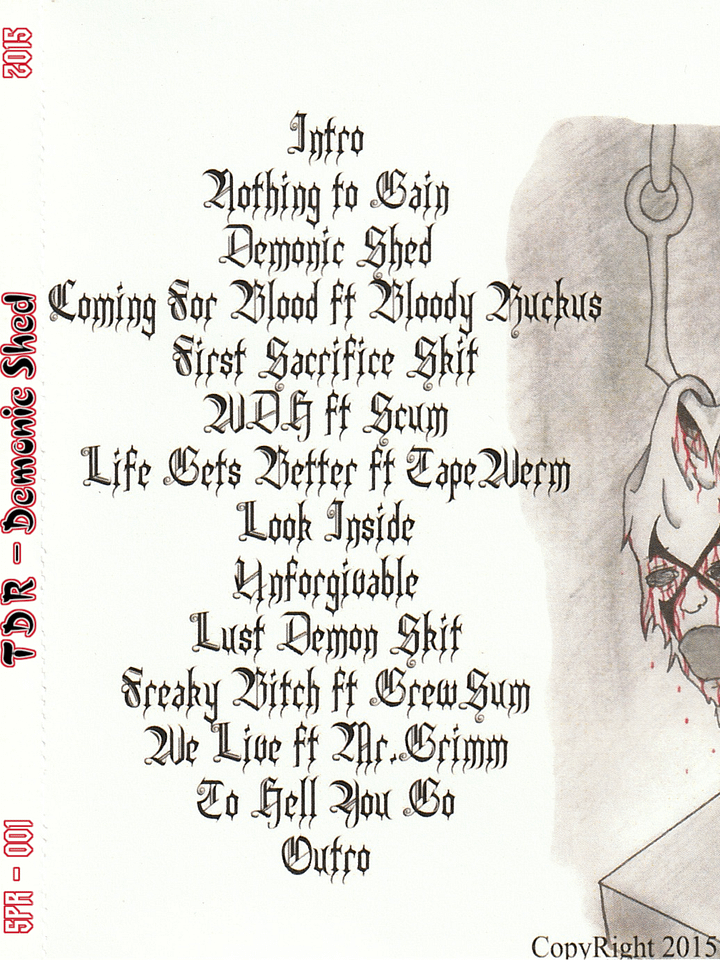 2015
TDR - Demonic Shed
SPR - 001
Intro
Nothing to Gain
Demonic Shed
Coming For Blood ft Bloody Ruckus
First Sacrifice Skit
WDH ft Scum
Life Gets Better ft TapeWerm
Look Inside
Unforgivable
Lust Demon Skit
Freaky Bitch ft GrewSum
We Live ft Mr.Grimm
To Hell You Go
Outro
CopyRight 2015